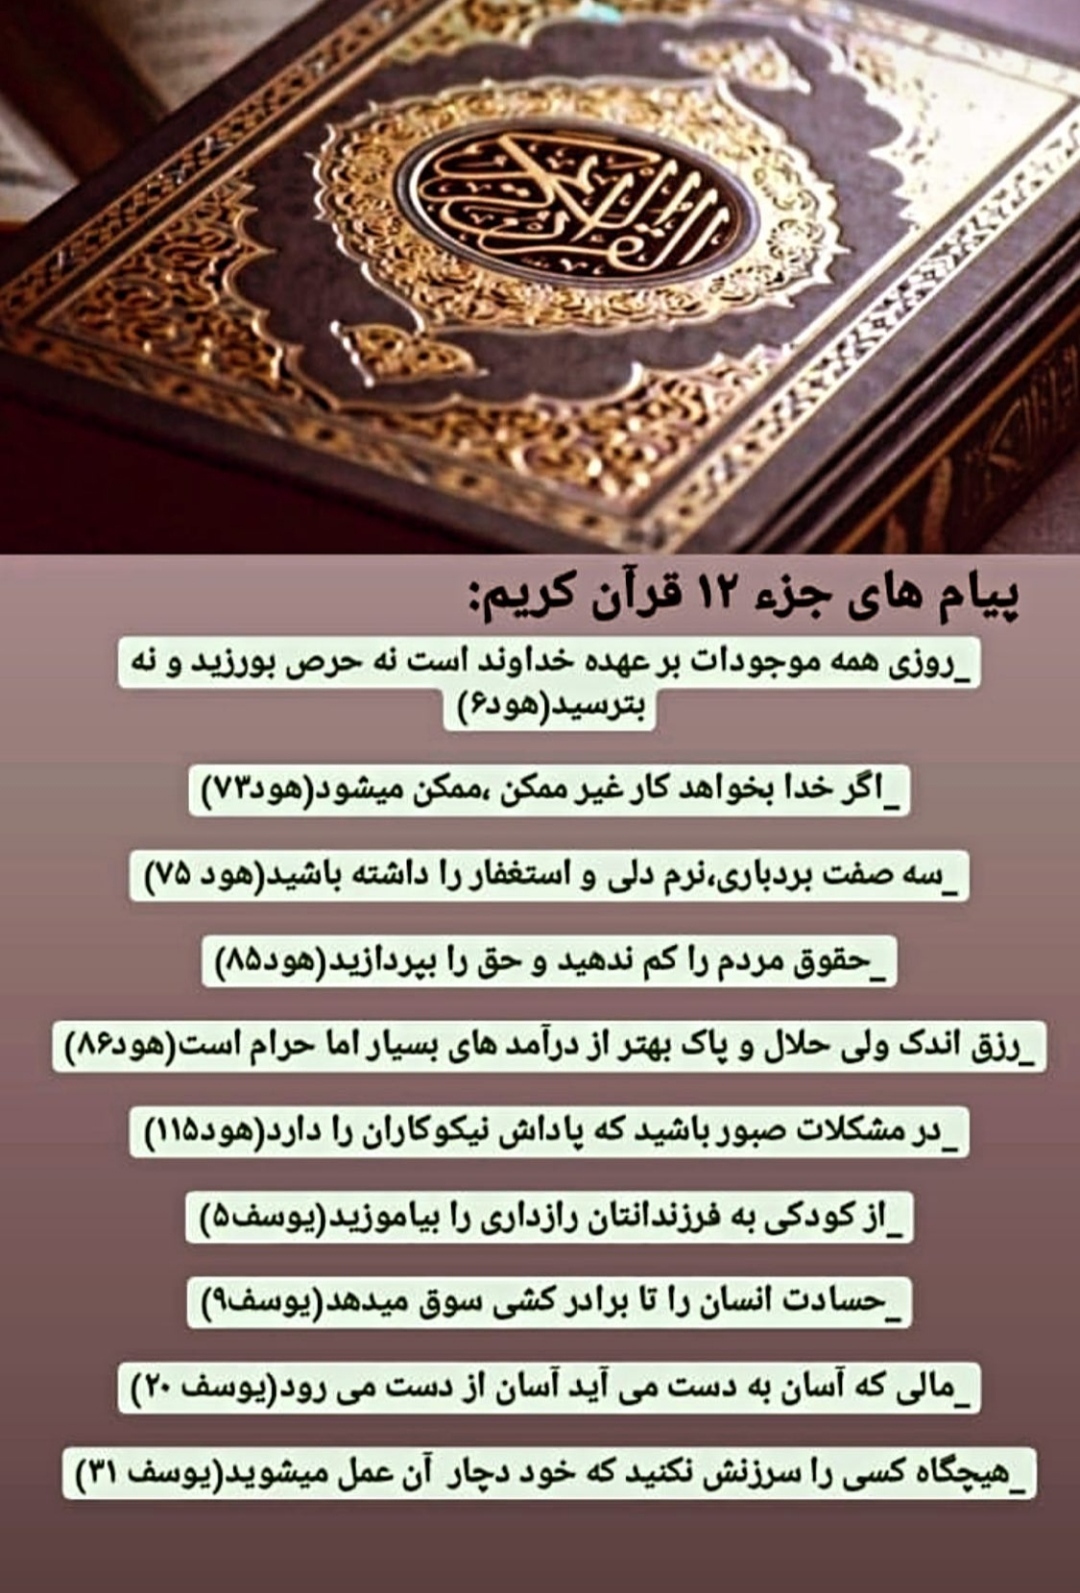 القرآن الكريم
پیام های جزء ۱۲ قرآن کریم:
_روزی همه موجودات بر عهده خداوند است نه حرص بورزید و نه
بترسید(هود۶)
_اگر خدا بخواهد کار غیر ممکن ،ممکن میشود(هود۷۳)
_سه صفت بردباری،نرم دلی و استغفار را داشته باشید(هود ۷۵)
_حقوق مردم را کم ندهید و حق را بپردازید(هود۸۵)
_رزق اندک ولی حلال و پاک بهتر از درآمد های بسیار اما حرام است(هود۸۶)
_در مشکلات صبور باشید که پاداش نیکوکاران را دارد(هود۱۱۵)
_از کودکی به فرزندانتان رازداری را بیاموزید(یوسف۵)
_حسادت انسان را تا برادر کشی سوق میدهد(یوسف۹)
_مالی که آسان به دست می آید آسان از دست می رود(یوسف ۲۰)
_هیچگاه کسی را سرزنش نکنید که خود دچار آن عمل میشوید(یوسف ۳۱)